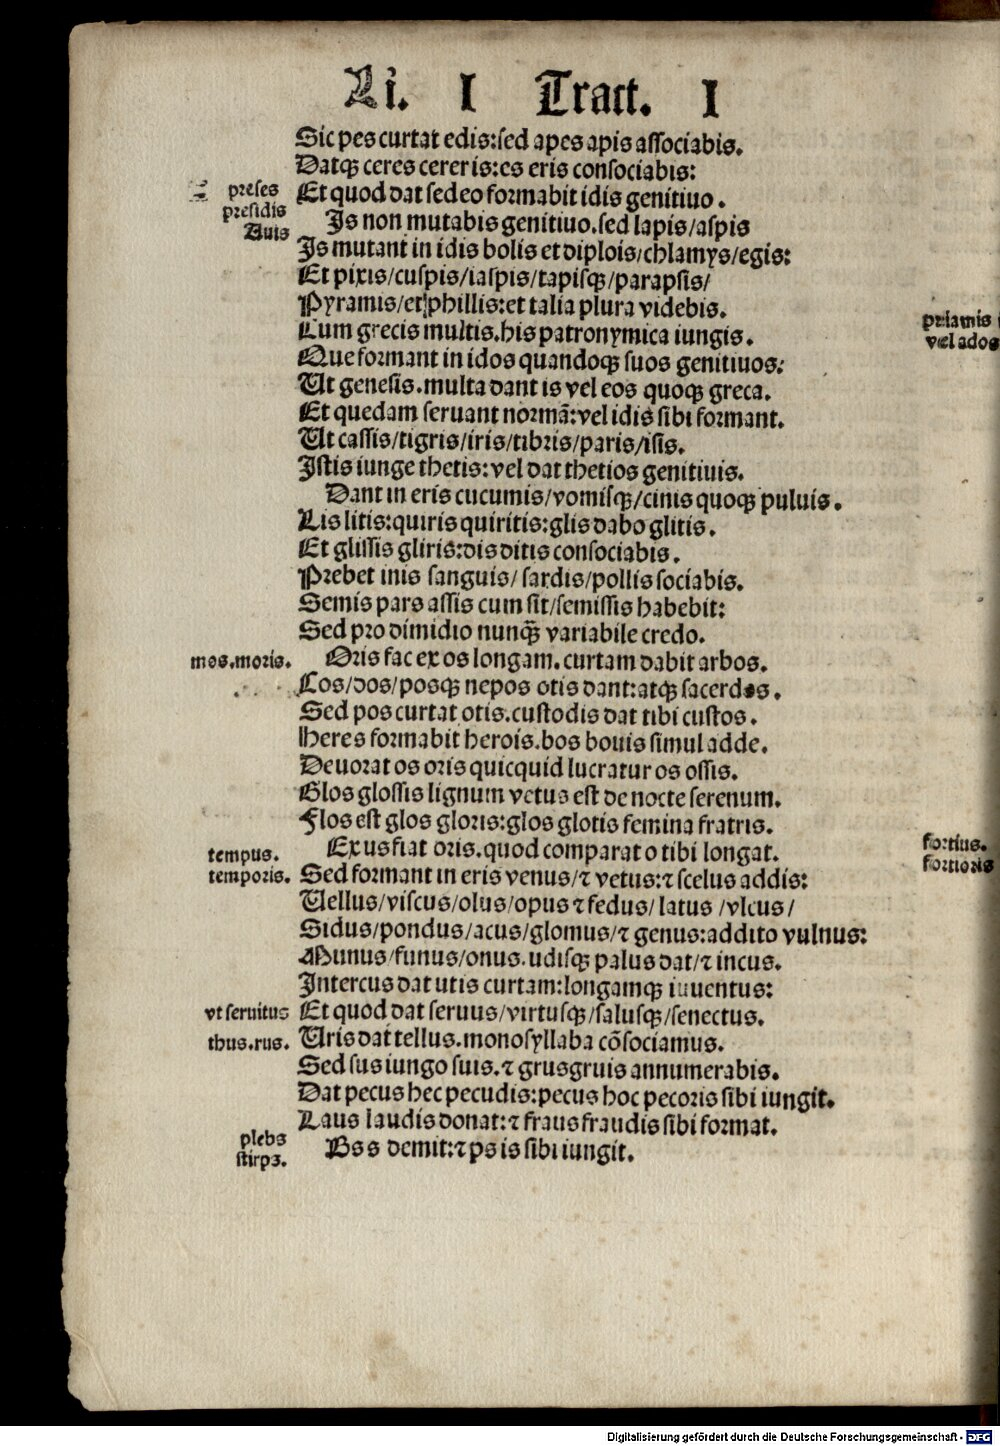 Li. I Tract. I
Sic pes curtat edis:sed apes apis associabis.
Datqꝫ ceres cereris:es eris consociabis:
preses Et quod dat sedeo formabit idis genitiuo.
presidis
Auis Is non mutabis genitiuo.sed lapis/aspis
Is mutant in idis bolis et diplois/chlamys/egis:
Et pixis/cuspis/iaspis/tapisqꝫ/parapsis/
Pyramis/et phillis:et talia plura videbis.
Cum grecis multis.his patronymica iungis.
Que formant in idos quandoqꝫ suos genitiuos:
Ut genesis.multa dant is vel eos quoqꝫ greca.
Et quedam seruant normã:vel idis sibi formant.
Ut cassis/tigris/iris/tibris/paris/isis.
Istis iunge thetis:vel dat thetios genitiuis.
Dant in eris cucumis/vomisqꝫ/cinis quoqꝫ puluis.
Lis litis:quiris quiritis:glis dabo glitis.
Et glissis gliris:dis ditis consociabis.
Prebet inis sanguis/sardis/pollis sociabis.
Semis pars assis cum sit/semissis habebit:
Sed pro dimidio nunqꝫ̃ variabile credo.
mos.moris. Oris fac ex os longam.curtam dabit arbos.
Cos/dos/posqꝫ nepos otis dant:atqꝫ sacerdos.
Sed pos curtat otis.custodis dat tibi custos.
Heres formabit herois.bos bouis simul adde.
Deuorat os oris quicquid lucratur os ossis.
Glos glossis lignum vetus est de nocte serenum.
Flos est glos gloris:glos glotis femina fratris.
tempus. Ex us fiat oris.quod comparat o tibi longat.
temporis. Sed formant in eris venus/⁊ vetus:⁊ scelus addis:
Uellus/viscus/olus/opus ⁊ fedus/latus/vlcus/
Sidus/pondus/acus/glomus/⁊ genus:addito vulnus:
Munus/funus/onus.udisqꝫ palus dat/⁊ incus.
Intercus dat utis curtam:longamqꝫ iuuentus:
vt seruitus Et quod dat seruus/virtusqꝫ/salusqꝫ/senectus.
thus.rus. Uris dat tellus.monosyllaba cõsociamus.
Sed sus iungo suis.⁊ grus gruis annumerabis.
Dat pecus hec pecudis:pecus hoc pecoris sibi iungit.
Laus laudis donat:⁊ fraus fraudis sibi format.
plebs
stirpꝫ. Bs s demit:⁊ ps is sibi iungit.
priamis
vel ados
fortius.
fortioris
Digitalisierung gefördert durch die Deutsche Forschungsgemeinschaft - DFG